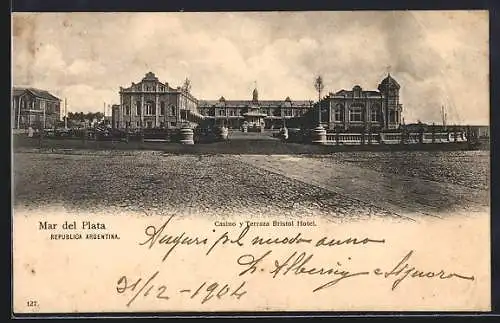 Casino y Terraza Bristol Hotel.
Mar del Plata
REPUBLICA ARGENTINA.
Auguri pel nuovo anno
L. Alberini e Signora
31/12 - 904
127.